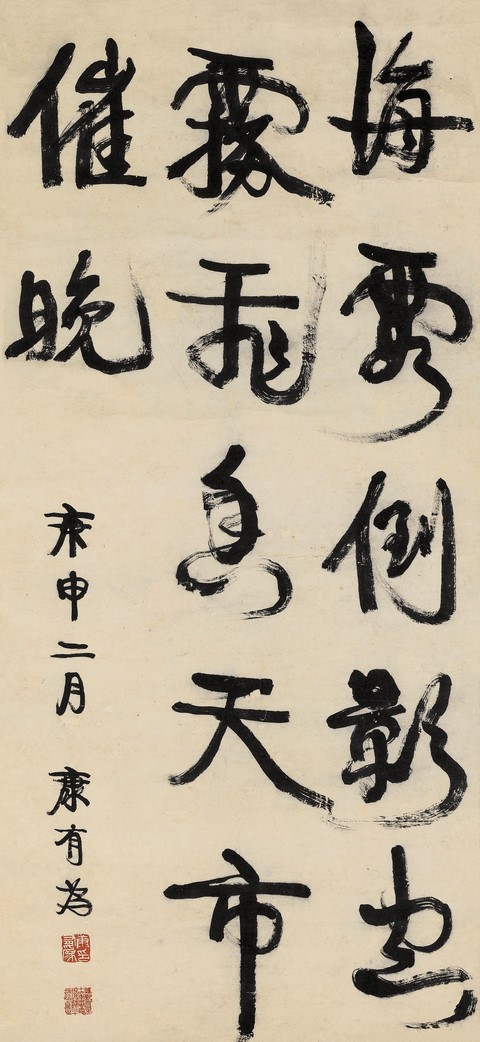 海霞倒影空
霧飛香天市
催晚
庚申二月 康有為